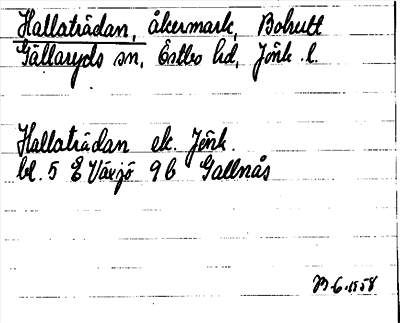 Hallaträdan, åkermark, Bohult
Gällaryds sn, Östbo hd, Jönk. l.
Hallaträdan ek. Jönk.
bl. 5 E Växjö 9 b Gallnås